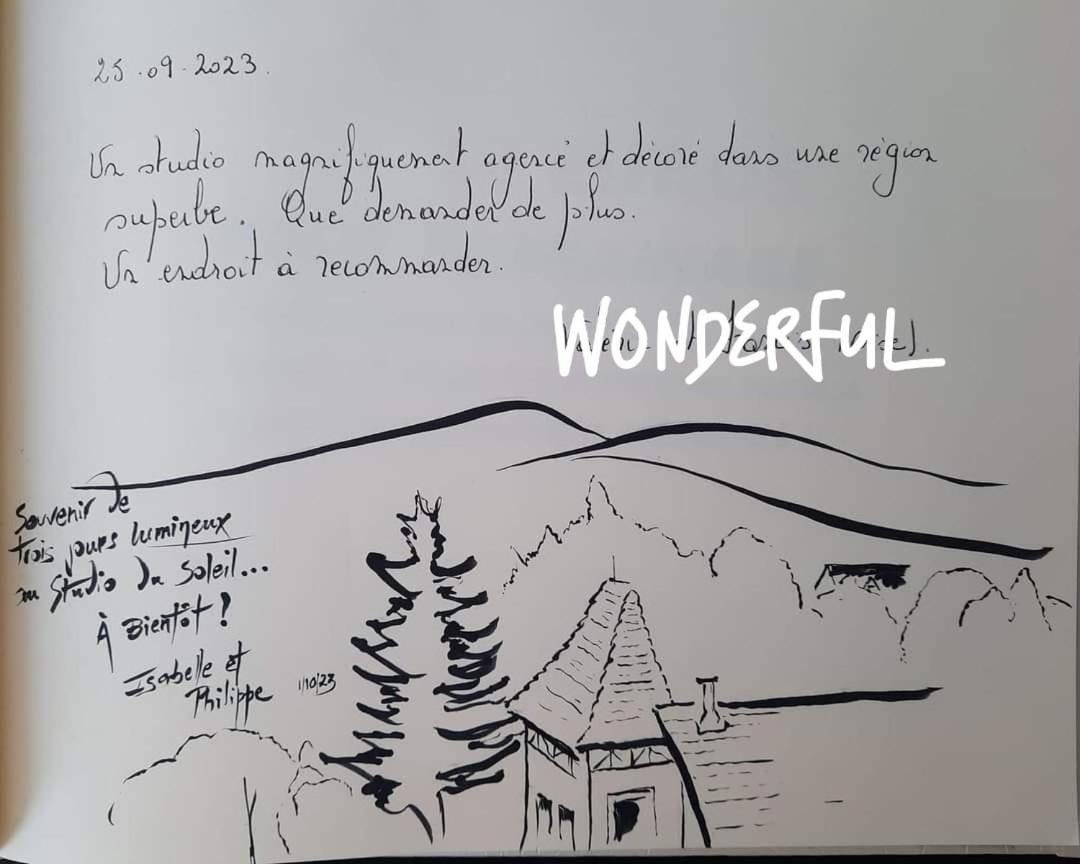 25.09.2023.
Un studio magnifiquement agencé et décoré dans une région
superbe. Que demander de plus.
Un endroit à recommander.
WONDERFUL
et
Souvenir de
trois jours lumineux
au Studio du Soleil...
À Bientôt !
Isabelle et
Philippe 1/10/23